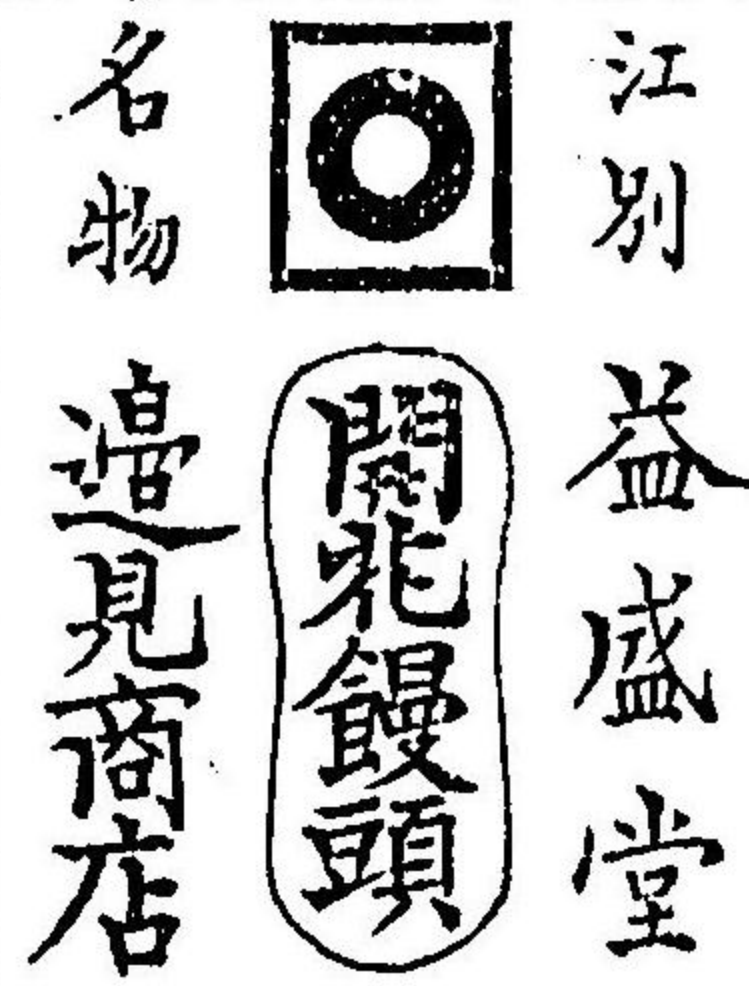 江別
益盛堂
開花饅頭
名物
邊見商店